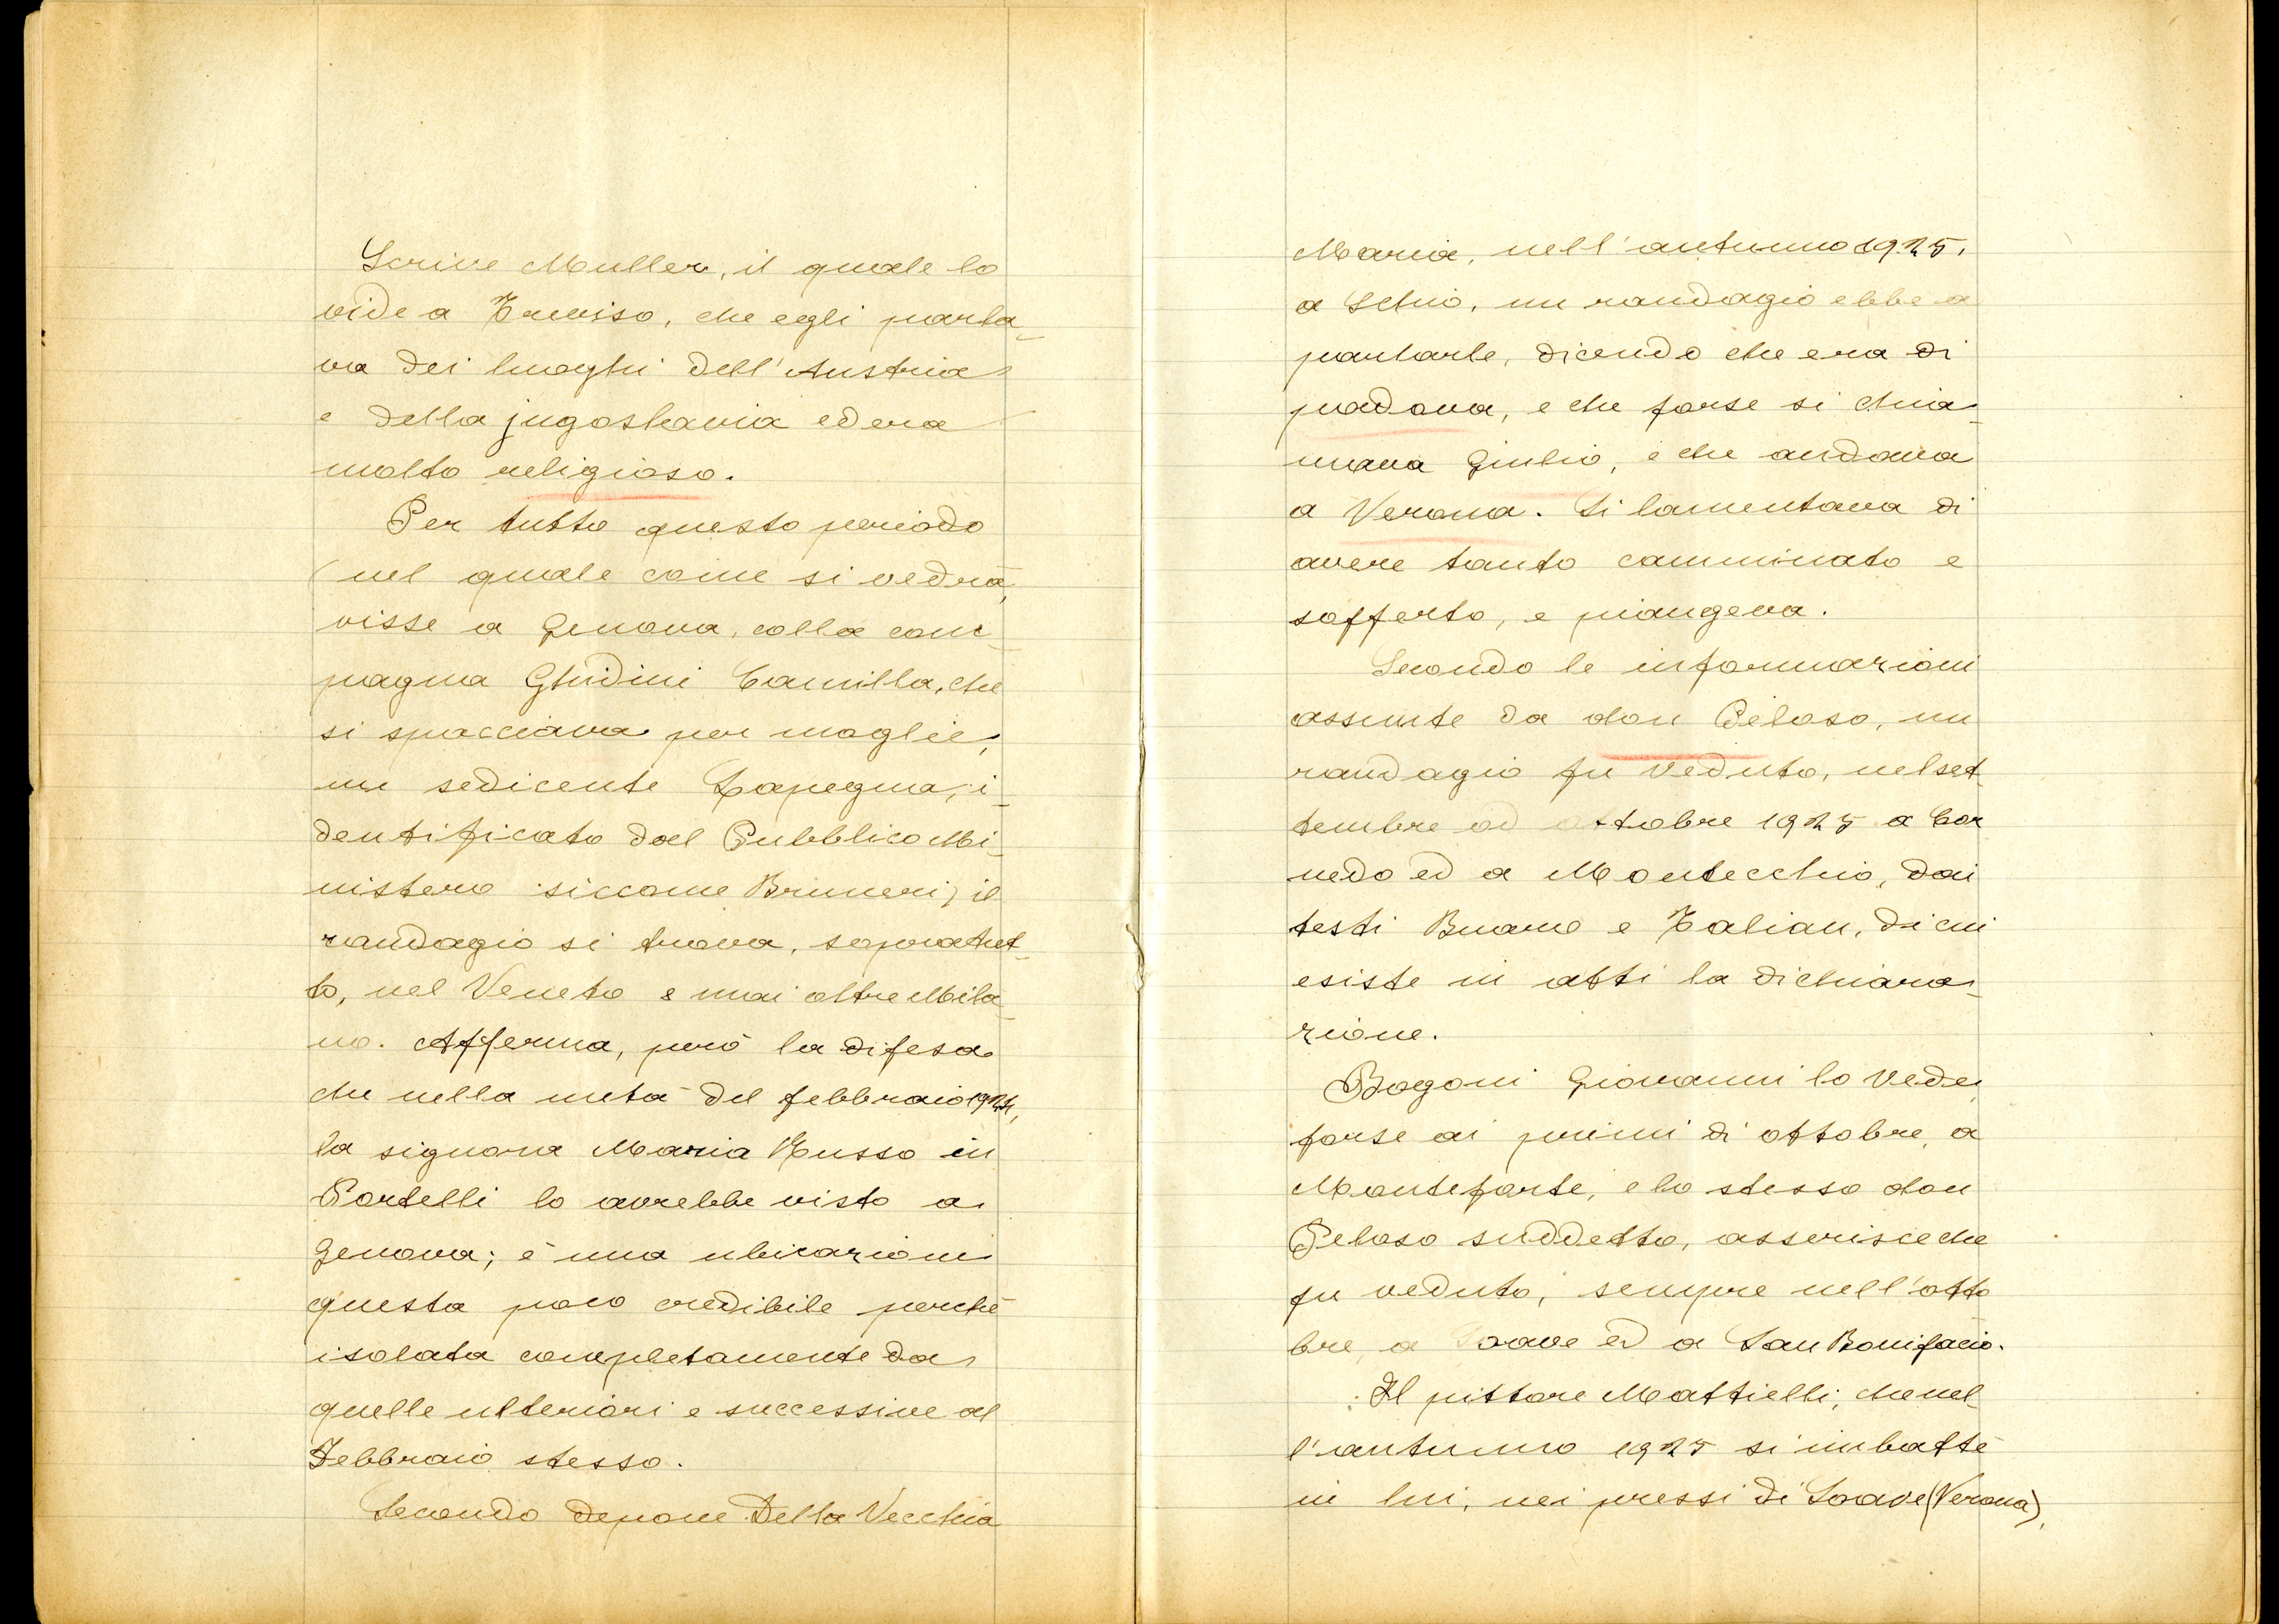 Scrive Muller, il quale lo
vide a Treviso, che egli parla-
va dei luoghi dell'Austria
e della jugoslavia ed era
molto religioso.
Per tutto questo periodo
(nel quale come si vedrà,
visse a Genova, colla com-
pagna Ghidini Camilla, che
si spacciava per moglie,
un sedicente Lapegna, i-
dentificato dal Pubblico Mi-
nistero siccome Bruneri) il
randagio si trova, sopratut-
to, nel Veneto e mai oltre Mila-
no. Afferma, però la difesa
che nella metà del febbraio
la signora Maria Russo in
Portelli lo avrebbe visto a
Genova; è una ubicazione
questa poco credibile perchè
isolata completamente da
quelle ulteriori e successive al
Febbraio stesso.
Secondo depone Della Vecchia
Maria, nell'autunno 1925,
a Schio, un randagio ebbe a
parlarle, dicendo che era di
padova, e che forse si chia-
mava Giulio, e che andava
a Verona. Si lamentava di
avere tanto camminato e
sofferto, e piangeva.
Secondo le informazioni
assunte da don Peloso, un
randagio fu veduto, nel set-
tembre od ottobre 1925 a Cor
nedo ed a Montecchio, dai
testi e Zalian, di cui
esiste in atti la dichiara-
zione.
Bogoni Giovanni lo vede,
forse ai primi di ottobre, a
Monteforte, e lo stesso don
Peloso suddetto, asserisce che
fu veduto, sempre nell'otto
bre, a Soave ed a San Bonifacio.
Il pittore Mattielli, che nel-
l'autunno 1925 si imbattè
in lui, nei pressi di Soave (Verona),